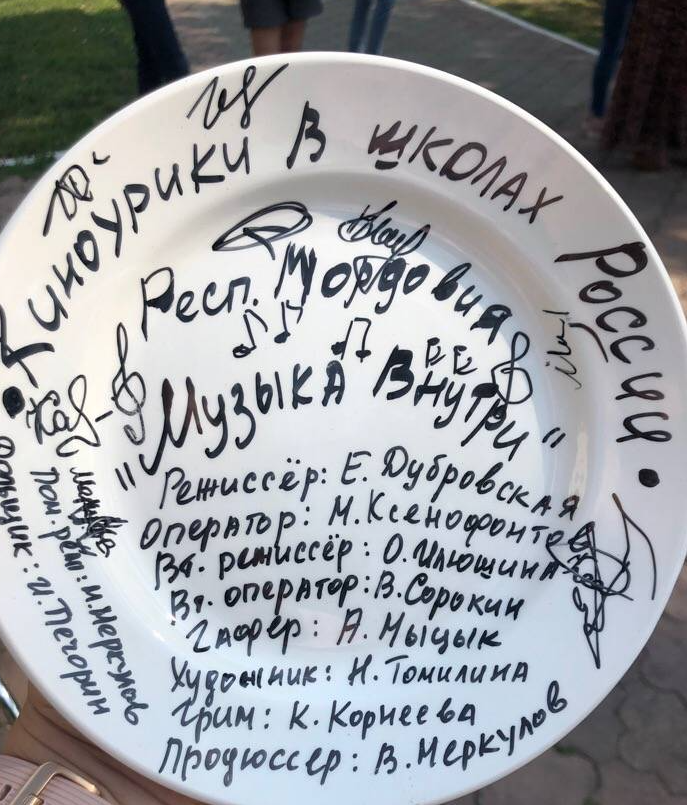 Киноуроки В ШКОЛАХ РОССИИ
Респ. Мордовия
"Музыка Внутри"
Режиссёр: Е. Дубровская
Оператор: М. Ксенофонтов
Вт. режиссёр: О. Илюшина
Вт. оператор: В. Сорокин
Гафер: А. Мыцык
Художник: Н. Томилина
Грим: К. Корнеева
Продюссер: В. Меркулов
Пом. реж: И. Меркулов
Дольщик: И. Печорин